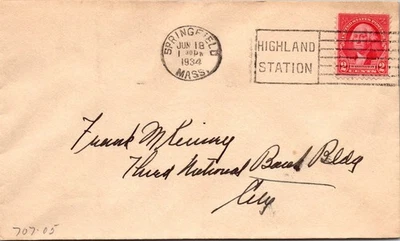 SPRINGFIELD
JUN 18
1934
MASS.
HIGHLAND
STATION
2 2
Frank McKinny
Third National Bank Bldg
City
707-05